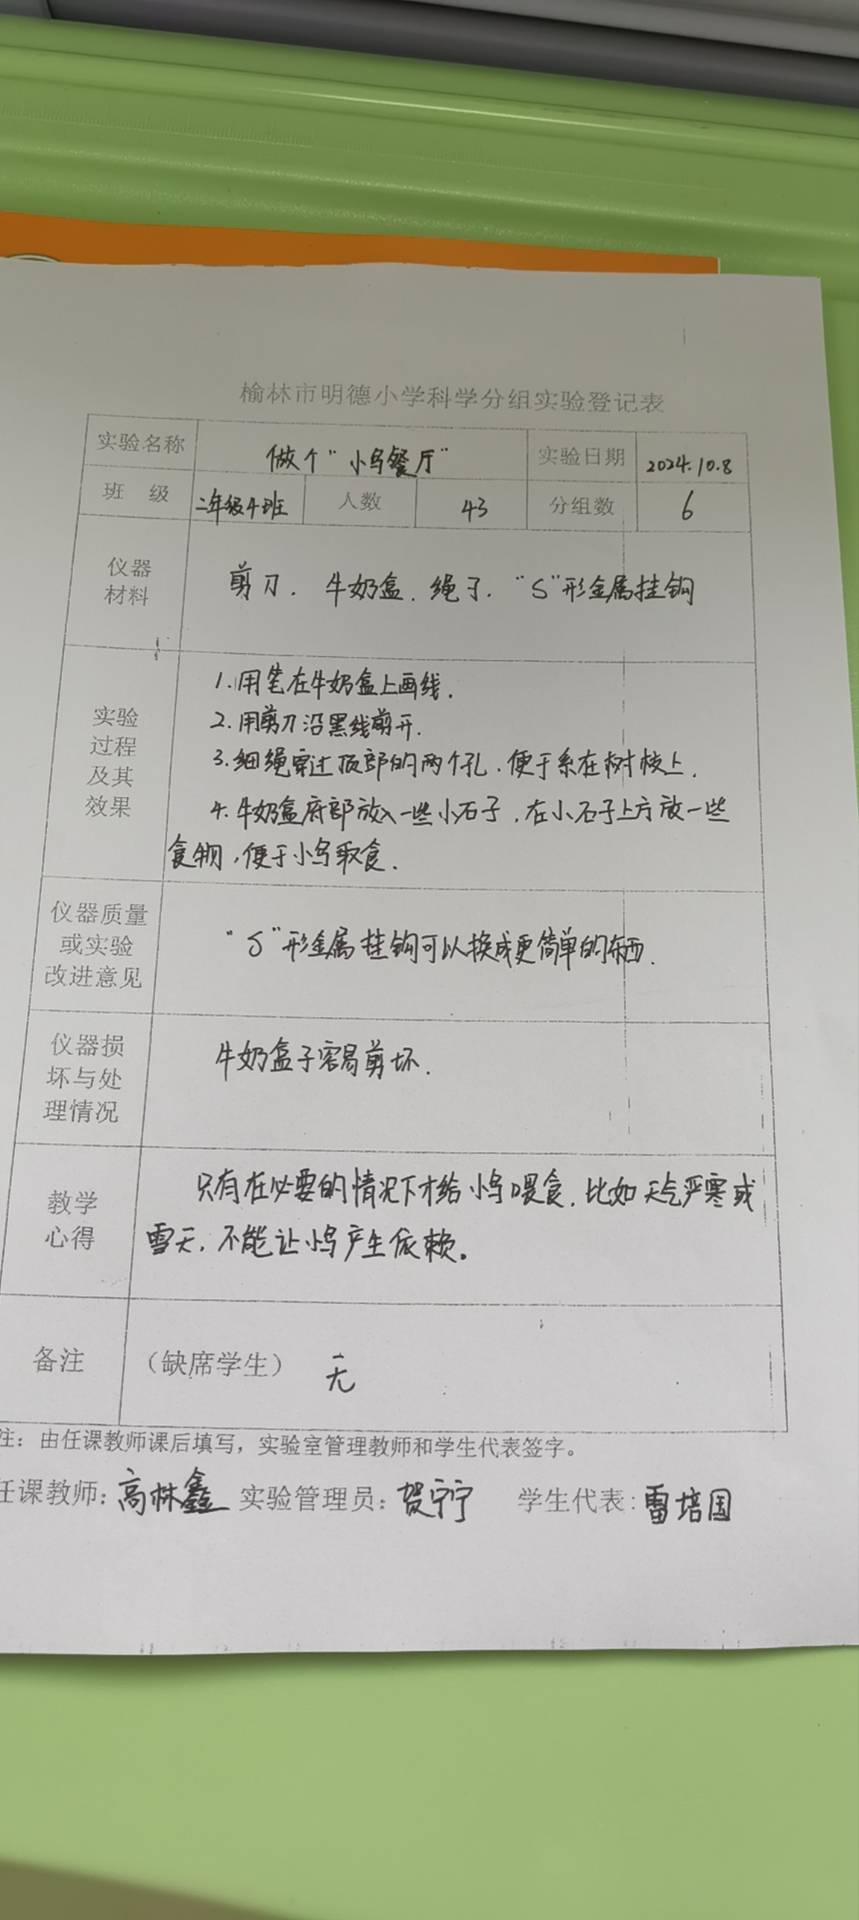 榆林市明德小学科学分组实验登记表
实验名称 做个“小鸟餐厅” 实验日期 2024.10.8
班 级 二年级4班 人数 43 分组数 6
仪器
材料
剪刀. 牛奶盒. 绳子. “S”形金属挂钩
实验
过程
及其
效果
1. 用笔在牛奶盒上画线.
2. 用剪刀沿黑线剪开.
3. 细绳穿过顶部的两个孔, 便于系在树枝上.
4. 牛奶盒底部放入一些小石子, 在小石子上方放一些
食物, 便于小鸟取食.
仪器质量
或实验
改进意见
“S”形金属挂钩可以换成更简单的东西.
仪器损
坏与处
理情况
牛奶盒子容易剪坏.
教学
心得
只有在必要的情况下才给小鸟喂食, 比如天气严寒或
雪天, 不能让小鸟产生依赖。
备注 (缺席学生) 无
注: 由任课教师课后填写, 实验室管理教师和学生代表签字。
任课教师: 高林鑫 实验管理员: 贺宁宁 学生代表: 雷培国